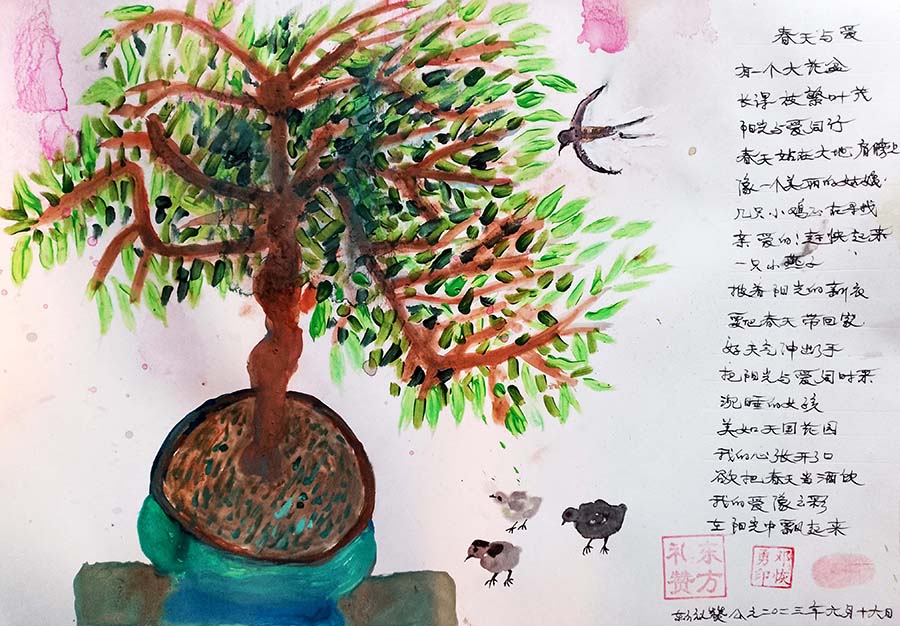 春天与爱
有一个大花盆
长课枝繁叶茂
阳光与爱同行
春天站在大地肩膀上
像一个美丽的姑娘
几只小鸡正在寻找
亲爱的！赶快起来
一只小燕子
披着阳光的新衣
要把春天带回家
好天气冲出了手
把阳光与爱同时采
沉睡的女孩
美如天国花园
我的心张开了口
欲把春天当酒饮
我的爱像云彩
在阳光中飘起来
东方礼赞
邓恢勇印
东方礼赞公元二〇二三年六月十六日